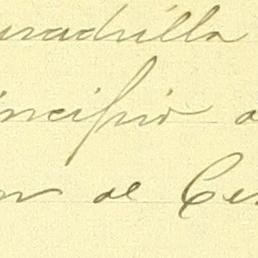 uadrilla
incipio a
on al Ce